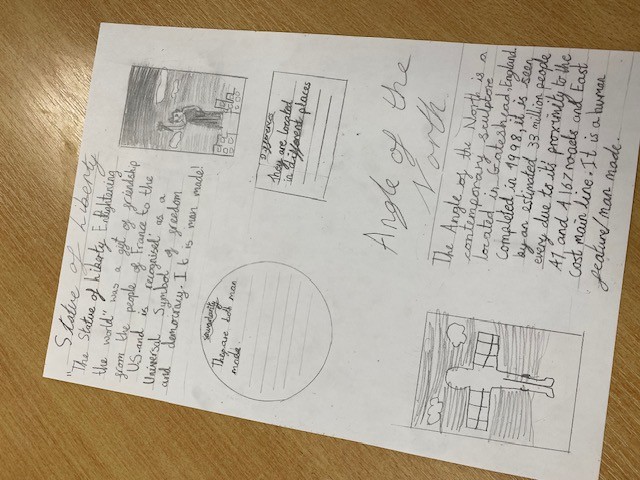 Statue of Liberty
"The Statue of Liberty Enlightening
the world" was a gift of friendship
from the people of France to the
US and is recognised as a
Universal Symbol of freedom
and democracy. It is man made!
Difference
They are located
in different places
They are both man
made.
Angle of the
North
The Angle of the North is a
contemporary sculpture
located in Gateshead, England
Completed in 1998, it is seen
by an estimated 33 million people
every due to it's proximity to the
A1 and A167 roads and East
Coast main line. It is a human
feature/man made.